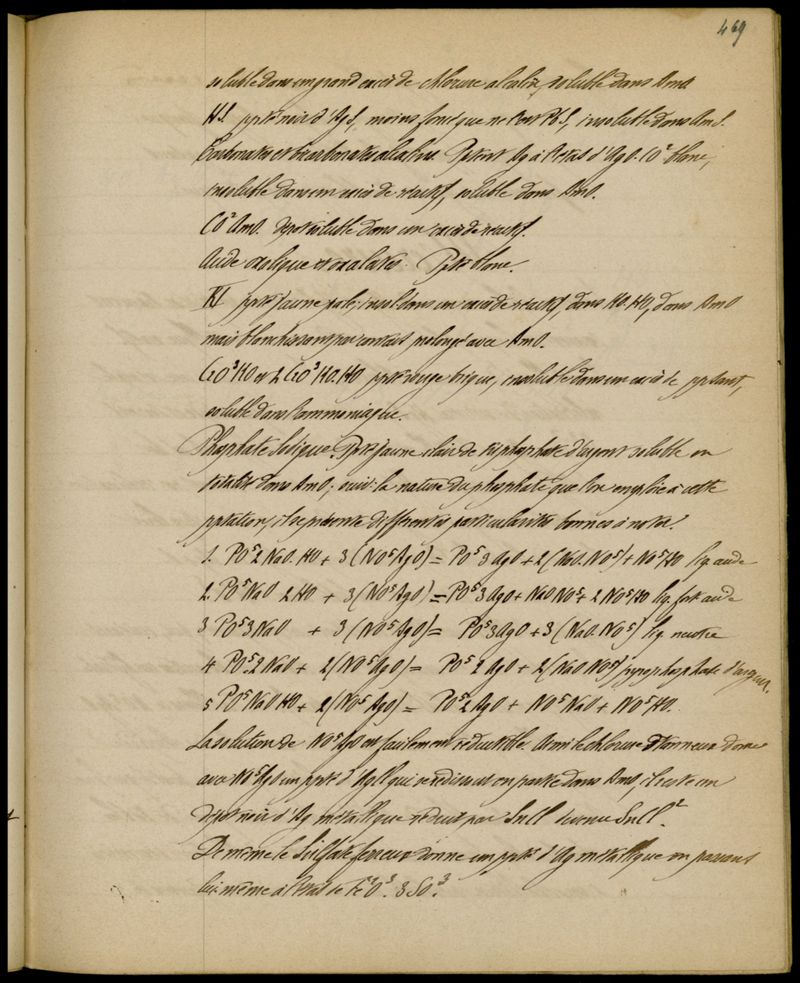 469
soluble dans un grand excès de chlorure alcalin, soluble dans AmO
HS ppté noir d'AgS, moins foncé que ne l'est PbS, insoluble dans AmS.
Carbonates et bicarbonates alcalins Pptent Ag à l'état d'AgO.CO² blanc,
insoluble dans un excès de réactif, soluble dans AmO.
CO²AmO. dépôt soluble dans un excès de réactif.
Acide oxalique et oxalates. Ppté blanc.
KI ppté jaune pale, insol dans un excès de réactif, dans AmO
mais blanchissant par contact prolongé avec AmO.
CrO³KO et 2CrO³KO.HO ppté rouge brique, insoluble dans un excès de pptant,
soluble dans l'ammoniaque.
Phosphate Sodique. Ppté jaune clair de triphosphate d'argent soluble en
totalité dans AmO; suivt la nature du phosphate que l'on emploie à cette
pptation, il se présente différentes particularités bonnes à noter:
1. PO⁵2NaO.HO + 3(NO⁵AgO) = PO⁵3AgO + 2(NaO.NO⁵) + NO⁵HO liq. acide
2. PO⁵NaO 2HO + 3(NO⁵AgO) = PO⁵3AgO + NaO NO⁵ + 2NO⁵HO liq. fort acide
3 PO⁵3NaO + 3(NO⁵AgO) = PO⁵3AgO + 3(NaO.NO⁵) liq. neutre
4 PO⁵.2NaO + 2(NO⁵AgO) = PO⁵2AgO + 2(NaO NO⁵) pyrophosphate d'argent.
5 PO⁵NaO HO + 2(NO⁵AgO) = PO⁵2AgO + NO⁵NaO + NO⁵HO.
La solution de NO⁵AgO est facilement réductible. Ainsi le chlorure stanneux donne
avec NO⁵AgO un ppté d'AgCl qui se redissout en partie dans AmO, il reste un
dépôt noir d'Ag métallique réduit par SnCl devenu SnCl².
De même le Sulfate ferreux donne un ppté d'Ag métallique en passant
lui-même à l'état de Fe²O³.3SO³.